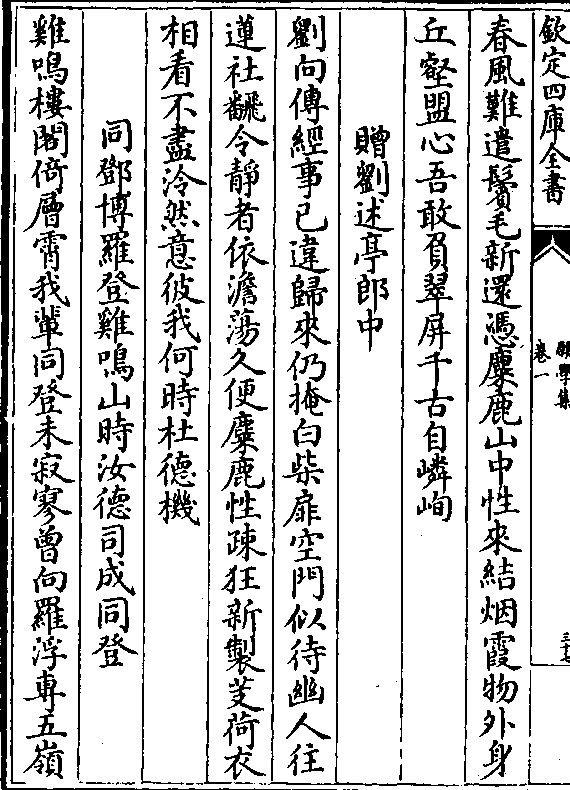 欽定四庫全書
願學集
卷一
三十七
春風難遣鬢毛新還憑麋鹿山中性來結烟霞物外身
丘壑盟心吾敢負翠屏千古自嶙峋
贈劉述亭郎中
劉向傳經事已違歸來仍掩白柴扉空門似待幽人往
蓮社翻令靜者依澹蕩久便麋鹿性疎狂新製芰荷衣
相看不盡泠然意彼我何時杜德機
同鄧博羅登雞鳴山時汝德司成同登
雞鳴樓閣倚層霄我輩同登未寂寥曾向羅浮專五嶺